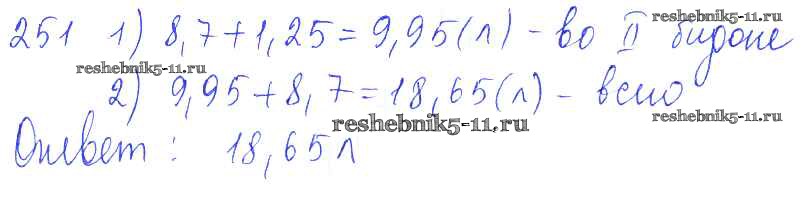 251 1) 8,7+1,25=9,95(л) - во II бидоне
reshebnik5-11.ru
reshebnik5-11.ru
2) 9,95+8,7=18,65(л) - всего
reshebnik5-11.ru
reshebnik5-11.ru
Ответ: 18,65 л